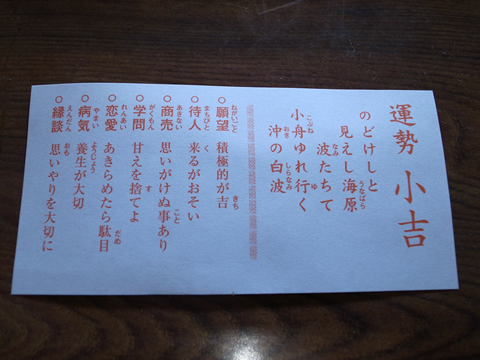 運勢 小吉
のどけしと
見えし海原
波たちて
小舟ゆれ行く
沖の白波
○願望 積極的が吉
○待人 来るがおそい
○商売 思いがけぬ事あり
○学問 甘えを捨てよ
○恋愛 あきらめたら駄目
○病気 養生が大切
○縁談 思いやりを大切に